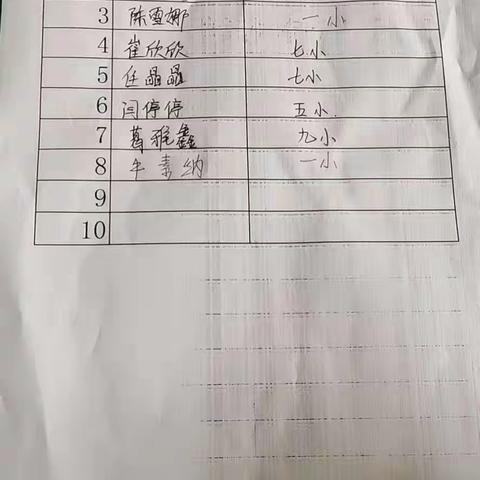 3 陈雪娜 一小
4 崔欣欣 七小
5 任晶晶 七小
6 闫停停 五小
7 葛雅鑫 九小
8 牛素纳 一小
9
10